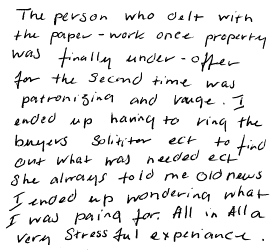 The person who delt with
the paper-work once property
was finally under-offer
for the second time was
patronizing and vauge. I
ended up having to ring the
buyers solititor ect to find
out what was needed ect
She always told me old news
I ended up wondering what
I was paing for. All in All a
very Stress ful experiance.